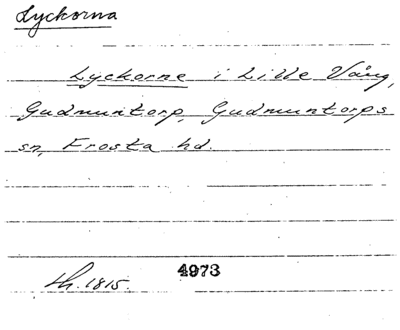 Lyckorna
Lyckorne i Lille Vång,
Gudmuntorp, Gudmuntorps
sn, Frosta hd.
4973
lh. 1815.